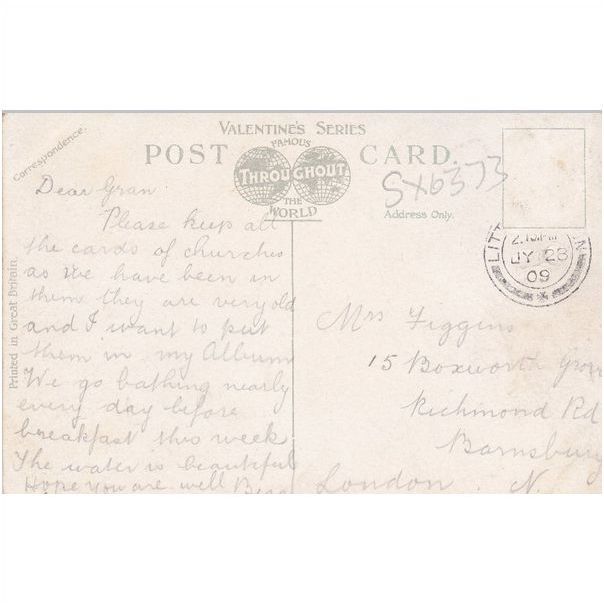 VALENTINE'S SERIES
FAMOUS
POST CARD.
THROUGHOUT
THE
WORLD
Correspondence.
Address Only.
SX6373
Printed in Great Britain.
2.15PM
JY 28
09
Dear Gran
Please keep all
the cards of churches
as we have been in
them they are very old
and I want to put
them in my Album
We go bathing nearly
every day before
breakfast this week
The water is beautiful
Hope you are well
Mrs Figgins
15 Boxworth Grove
Richmond Rd
Barnsbury
London. N.